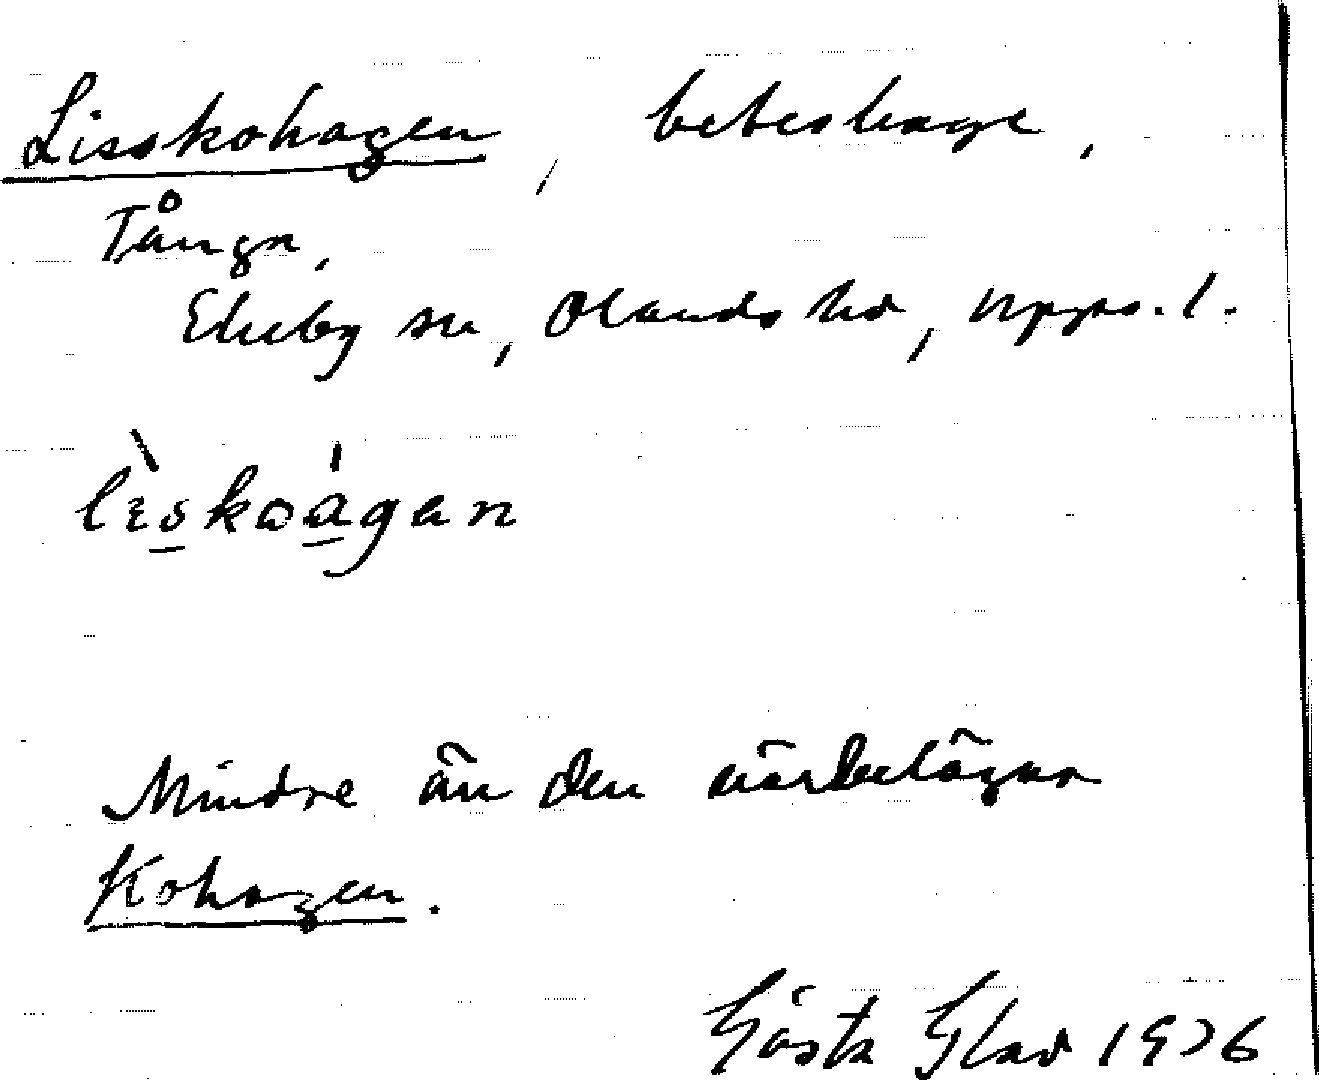 Lisskohagen, beteshage,
Tånga,
Ekeby sn, Olands hd, Upps. l.
lìskoágan
Mindre än den närbelägna
Kohagen.
Gösta Glad 1976